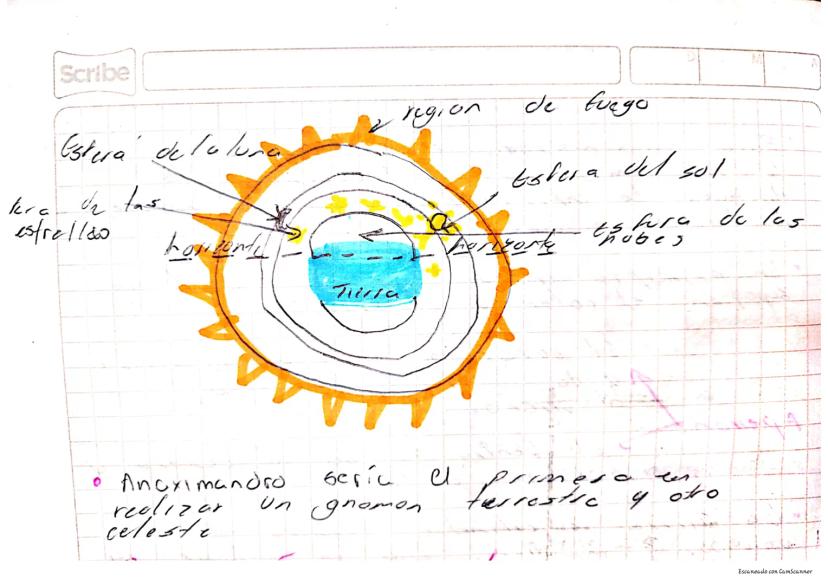 Scribe
D M A
region de fuego
Esfera de la luna
Esfera del sol
fera de las
estrellas
Esfera de las
nubes
horizonte
horizonte
Tierra
• Anaximandro sería el primero en
realizar un gnomon terrestre y otro
celeste
Escaneado con CamScanner